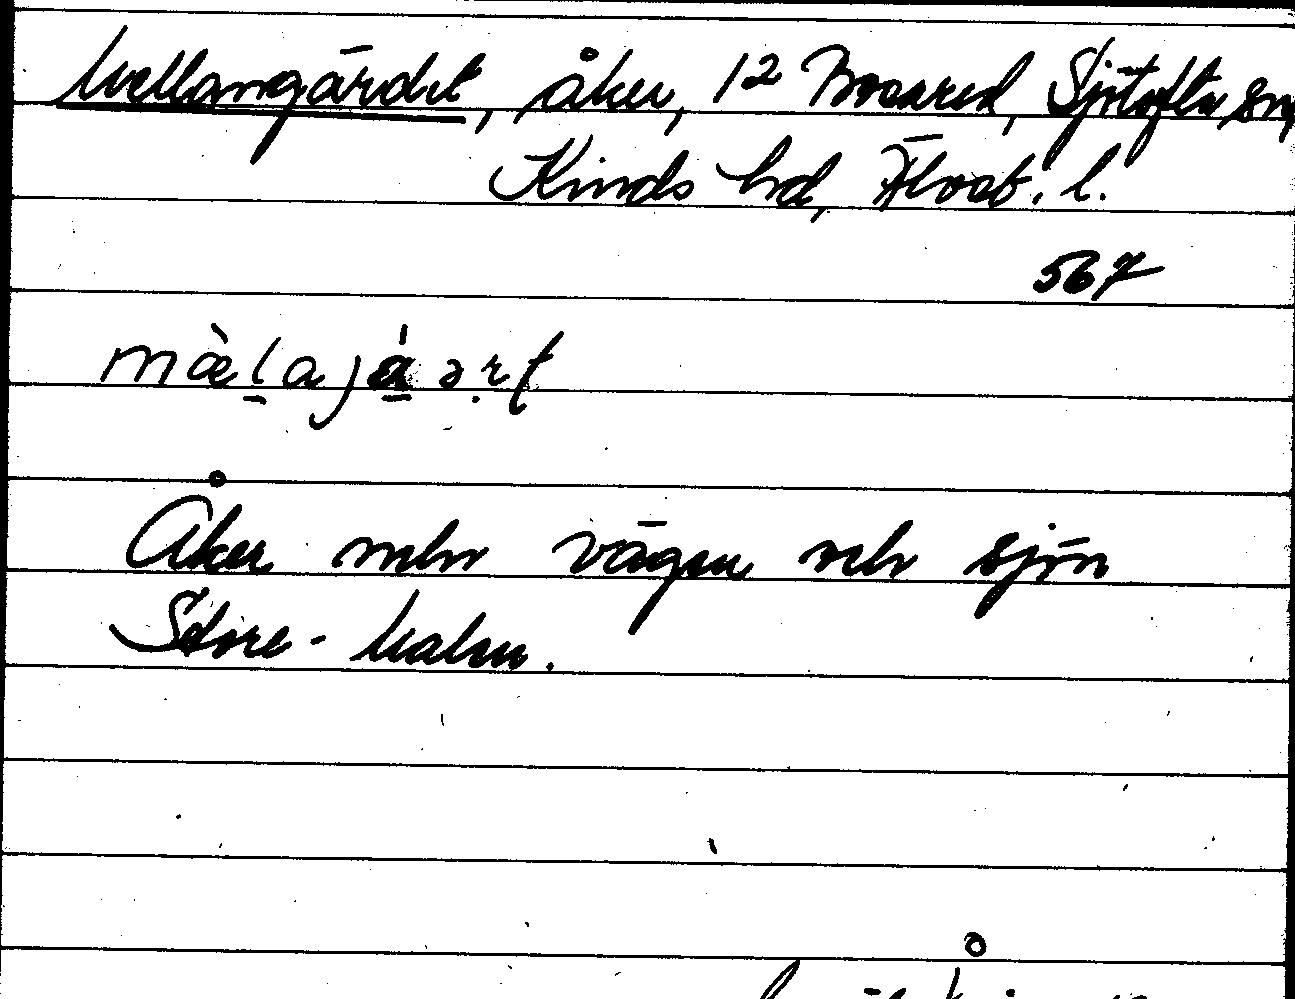 Mellangärdet, åker, 12 Bosared, Sjötofta sn,
Kinds hd, Älvsb. l.
567
mæ̀l̠ajá̠ərt
Åker mln vägen och sjön
Store-Malen.